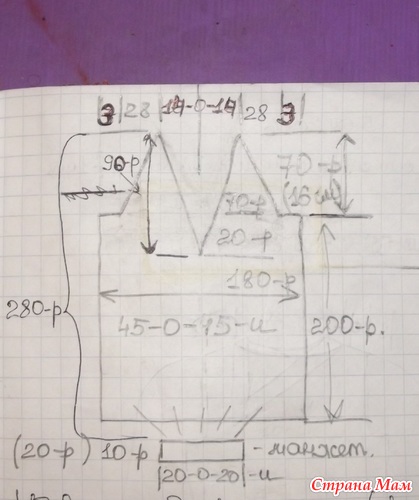 |3|28|14-0-14|28|3|
90-р
70-р
(16 см)
70-р
20-р
180-р
280-р
45-0-45-и
200-р.
(20-р) 10р
- манжет.
|20-0-20|-и
Страна Мам